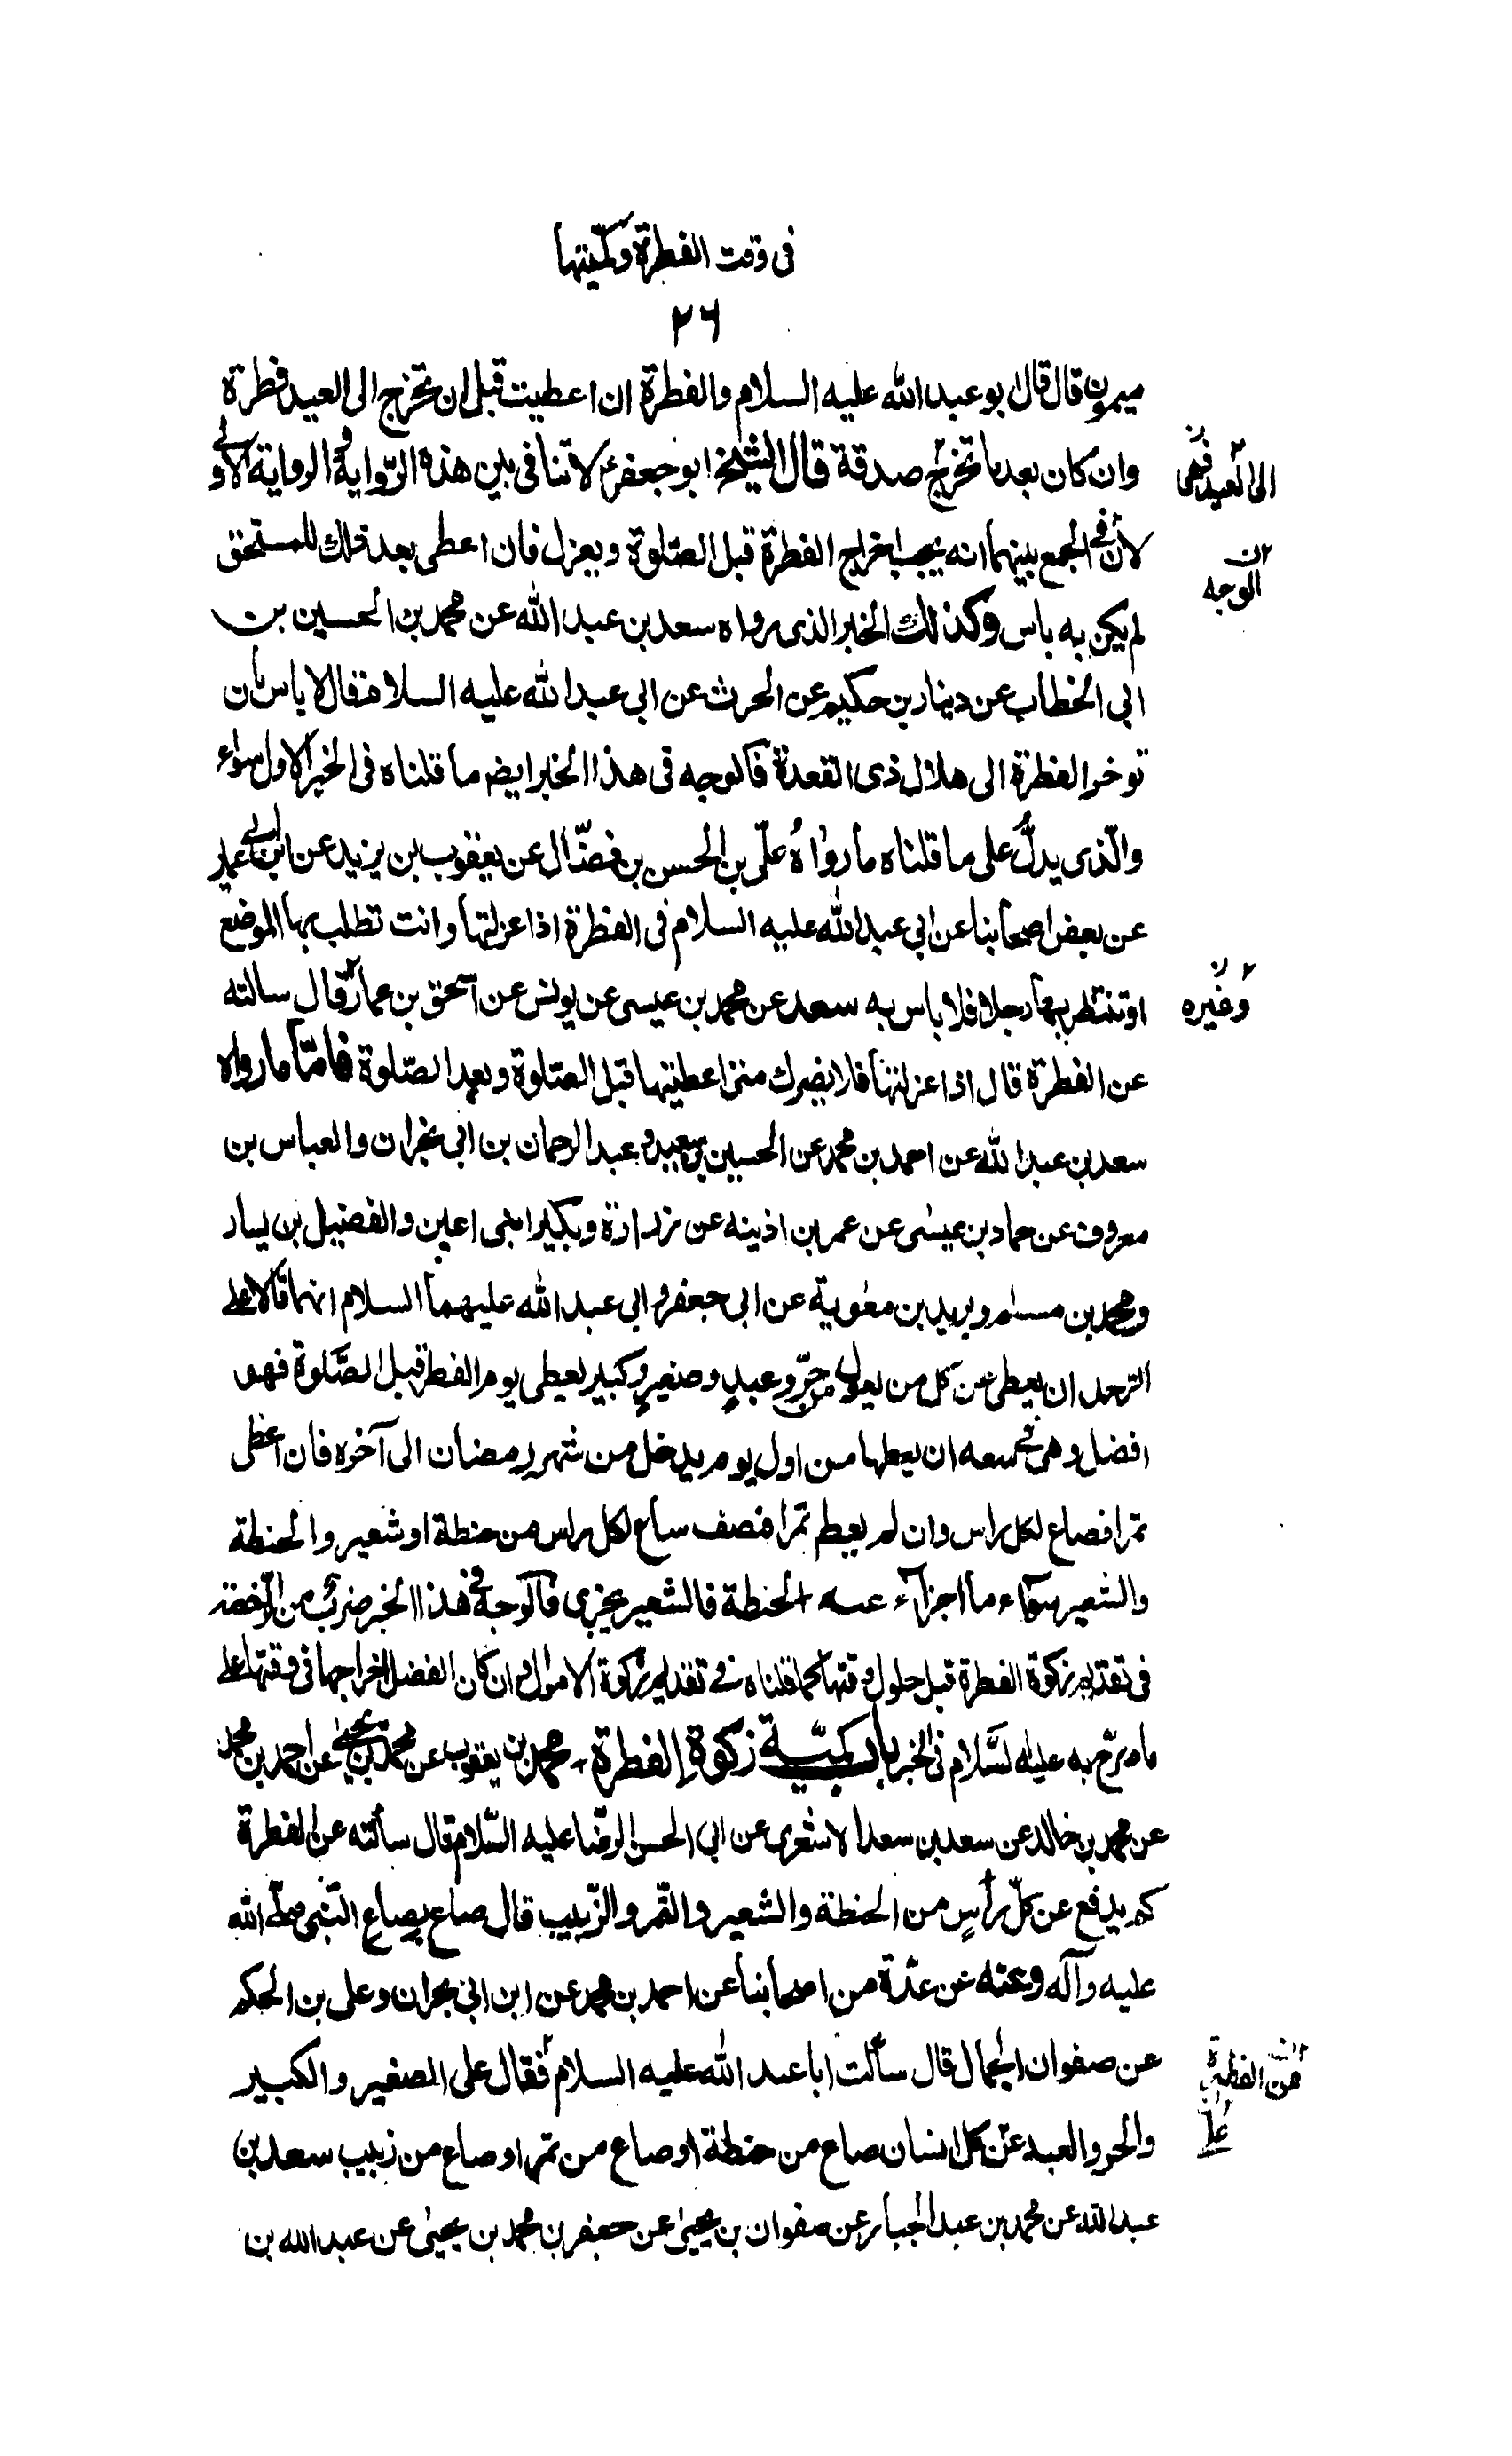 فى وقت الفطرة وكميتها
٢٦
ميمون قال قال ابو عبد الله عليه السلام والفطرة ان اعطيت قبل ان تخرج الى العيد فطرة
وان كان بعد ما تخرج صدقة قال الشيخ ابو جعفر لا تنافى بين هذه الرّواية والرواية الاولى
الى العيد فهى
لأن فى الجمع بينهما انه يجب اخراج الفطرة قبل الصلوة ويعزل فان اعطى بعد ذلك للمستحق
الوجه
لم يكن به باس وكذلك الخبر الذى رواه سعد بن عبد الله عن محمد بن الحسين بن
ابى الخطاب عن دينار بن حكيم عن الحرث عن ابى عبد الله عليه السلام فقال لا باس بان
توخر الفطرة الى هلال ذى القعدة فالوجه فى هذا الخبر ايضم ما قلناه فى الخبر الاول سواء
والّذى يدلّ على ما قلناه ما رواه علّى بن الحسن بن فضّال عن يعقوب بن يزيد عن ابن ابى عمير
عن بعض اصحابنا عن ابى عبد الله عليه السلام فى الفطرة اذا عزلتها وانت تطلب بها الموضع
او تنتظر بها رجلا فلا باس به سعد عن محمد بن عيسى عن يونس عن اسحق بن عمار قال سالته
وغيره
عن الفطرة قال اذا عزلتها فلا يضرك متى اعطيتها قبل الصلوة وبعد الصّلوة فامّا ما رواه
سعد بن عبد الله عن احمد بن محمد عن الحسين بن سعيد و عبد الرحمان بن ابى نجران والعباس بن
معروف عن حماد بن عيسى عن عمر بن اذينه عن زرارة وبكير ابنى اعين والفضيل بن يسار
ومحمد بن مسلم وبريد بن معوية عن ابى جعفر و ابى عبد الله عليهما السلام انهما قالا على
الرجل ان يعطى عن كل من يعول من حرّ وعبدٍ وصغيرٍ وكبير يعطى يوم الفطر قبل الصّلوة فهو
افضل وهى فى سعه ان يعطها من اول يوم يدخل من شهر رمضان الى آخره فان اعطى
تمرا فصاع لكل راس وان لم يعط تمرا فنصف ساع لكل راس من حنطة او شعير والحنطة
والشعير سوآء ما اجزآء عنه الحنطة فالشعير يجزى فالوجه فى هذا الخبر ضرب من الرّخصة
فى تقديم زكوة الفطرة قبل حلول وقتها كما قلناه فى تقديم زكوة الاموال وان كان الفضل اخراجها فى وقتها على
ما صرّح به عليه السّلام فى الخبر باب كميّة زكوة الفطرة محمد بن يعقوب عن محمد بن يحيى عن احمد بن محمد
عن محمد بن خالد عن سعد بن سعد الاشعرى عن ابى الحسن الرّضا عليه السّلام قال سألته عن الفطرة
كم يدفع عن كلّ رأسٍ من الحنطة والشعير والتّمر والزّبيب قال صاع بصاعِ النّبى صلّى الله
عليه وآله وعنه عن عدّة من اصحابنا عن احمد بن محمد عن ابن ابى نجران وعلى بن الحكم
عن صفوان الجمال قال سألت ابا عبد الله عليه السلام فقال على الصغير والكبير
عن الفطرة
والحر والعبد عن كل انسان صاع من حنطة او صاع من تمر او صاع من زبيب سعد بن
على
عبد الله عن محمد بن عبد الجبار عن صفوان بن يحيى عن جعفر بن محمد بن يحيى عن عبد الله بن